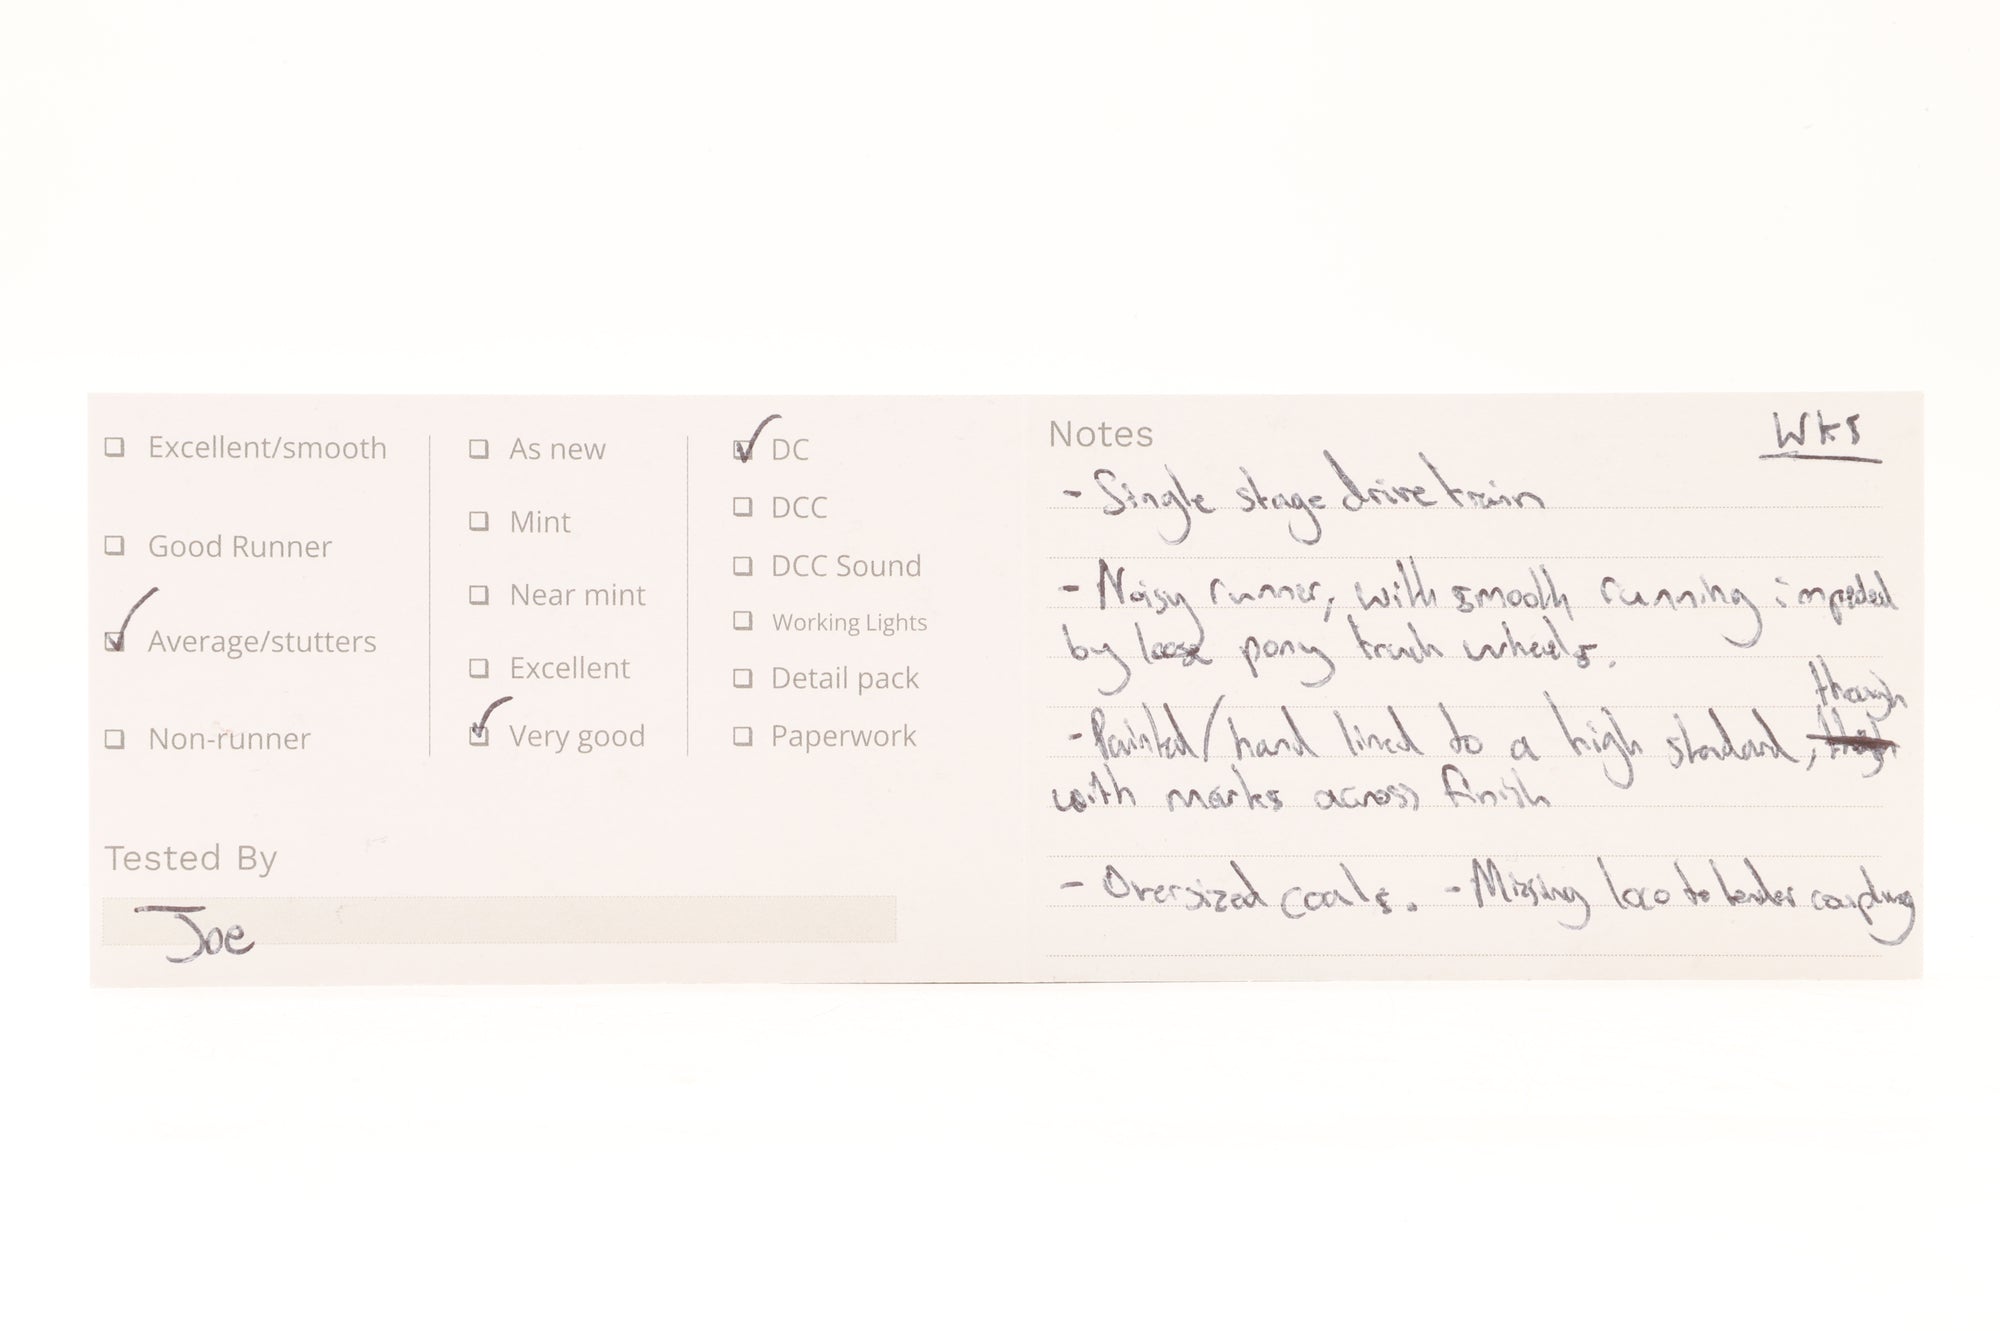 Excellent/smooth
Good Runner
Average/stutters
Non-runner
As new
Mint
Near mint
Excellent
Very good
DC
DCC
DCC Sound
Working Lights
Detail pack
Paperwork
Tested By
Joe
Notes
- Single stage drive train
- Noisy runner, with smooth running impeded
by loose pony truck wheels.
though
- Painted/hand lined to a high standard,
with marks across finish
- Oversized coals. - Missing loco to tender coupling